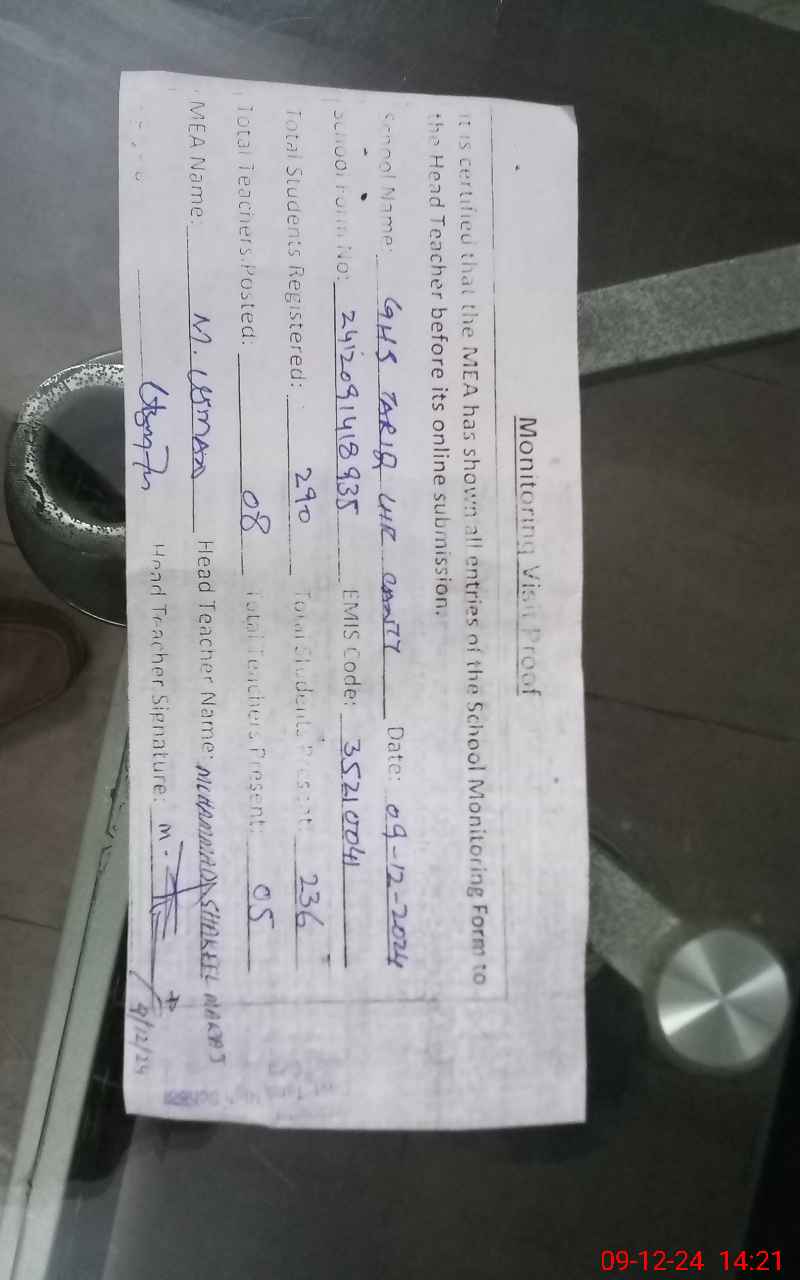 Monitoring Visit Proof
It is certified that the MEA has shown all entries of the School Monitoring Form to
the Head Teacher before its online submission.
School Name: GHS TARIQ LHR CANTT Date: 09-12-2024
School Form No: 2412091418935 EMIS Code: 35210041
Total Students Registered: 290 Total Students Present: 236
Total Teachers Posted: 08 Total Teachers Present: 05
MEA Name: M. USMAN Head Teacher Name: MUHAMMAD SHAKEEL
Head Teacher Signature: M.
9/12/24
09-12-24 14:21